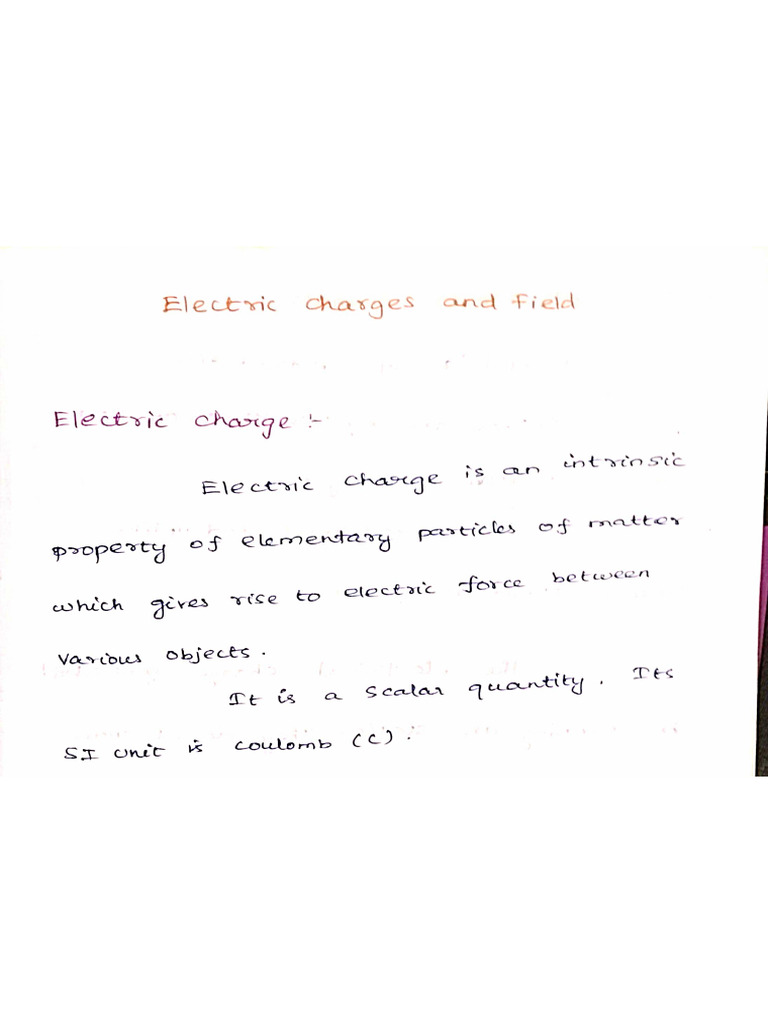 Electric charges and field
Electric charge :-
Electric charge is an intrinsic
property of elementary particles of matter
which gives rise to electric force between
various objects.
It is a scalar quantity. Its
SI unit is coulomb (C).